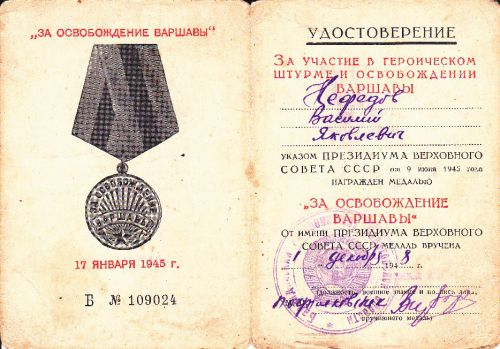 „ЗА ОСВОБОЖДЕНИЕ ВАРШАВЫ“
ЗА ОСВОБОЖДЕНИЕ
ВАРШАВЫ
17 ЯНВАРЯ 1945 г.
Б № 109024
УДОСТОВЕРЕНИЕ
ЗА УЧАСТИЕ В ГЕРОИЧЕСКОМ
ШТУРМЕ И ОСВОБОЖДЕНИИ
ВАРШАВЫ
Нефедов
Василий
Яковлевич
УКАЗОМ ПРЕЗИДИУМА ВЕРХОВНОГО
СОВЕТА СССР от 9 июня 1945 года
НАГРАЖДЕН МЕДАЛЬЮ
„ЗА ОСВОБОЖДЕНИЕ
ВАРШАВЫ“
ОТ ИМЕНИ ПРЕЗИДИУМА ВЕРХОВНОГО
СОВЕТА СССР МЕДАЛЬ ВРУЧЕНА
1 декабря 194 8 г.
(должность, военное звание и подпись лица,
вручившего медаль)